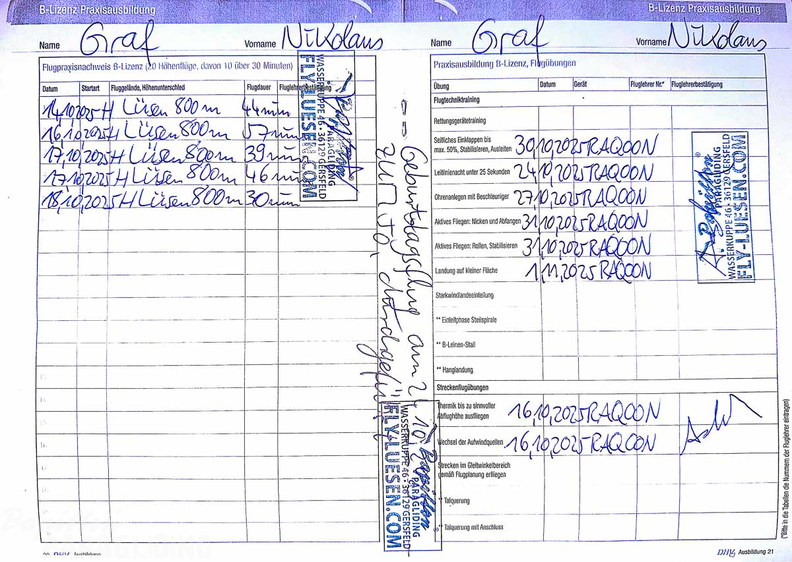 B-Lizenz Praxisausbildung
Name Graf Vorname Nikolaus
Flugpraxisnachweis B-Lizenz (20 Höhenflüge, davon 10 über 30 Minuten)
Datum Startart Fluggelände, Höhenunterschied Flugdauer Fluglehrerbestätigung
14,10,2025 H Lüsen 800m 44min
16,10,2025 H Lüsen 800m 57min
17,10,2025 H Lüsen 800m 39min
17,10,2025 H Lüsen 800m 46min
18,10,2025 H Lüsen 800m 30min
PARAGLIDING
WASSERKUPPE 46 • 36129 GERSFELD
FLY-LUESEN.COM
Geburtstagsflug am 21,10,
zum
Papillon
PARAGLIDING
WASSERKUPPE 46 • 36129 GERSFELD
FLY-LUESEN.COM
DHV Ausbildung
B-Lizenz Praxisausbildung
Name Graf Vorname Nikolaus
Praxisausbildung B-Lizenz, Flugübungen
Übung Datum Gerät Fluglehrer Nr.* Fluglehrerbestätigung
Flugtechniktraining
Rettungsgerätetraining
Seitliches Einklappen bis
max. 50%, Stabilisieren, Ausleiten 30,10,2025 RAQOON
Leitlinienacht unter 25 Sekunden 24,10,2025 RAQOON
Ohrenanlegen mit Beschleuniger 27,10,2025 RAQOON
Aktives Fliegen: Nicken und Abfangen 31,10,2025 RAQOON
Aktives Fliegen: Rollen, Stabilisieren 31,10,2025 RAQOON
Landung auf kleiner Fläche 1,11,2025 RAQOON
Papillon
PARAGLIDING
WASSERKUPPE 46 • 36129 GERSFELD
FLY-LUESEN.COM
Starkwindlandeeinteilung
** Einleitphase Steilspirale
** B-Leinen-Stall
** Hanglandung
Streckenflugübungen
Thermik bis zu sinnvoller
Abflughöhe ausfliegen 16,10,2025 RAQOON
Wechsel der Aufwindquellen 16,10,2025 RAQOON
Strecken im Gleitwinkelbereich
gemäß Flugplanung erfliegen
** Talquerung
** Talquerung mit Anschluss
(*Bitte in die Tabellen die Nummern der Fluglehrer eintragen)
DHV Ausbildung 21